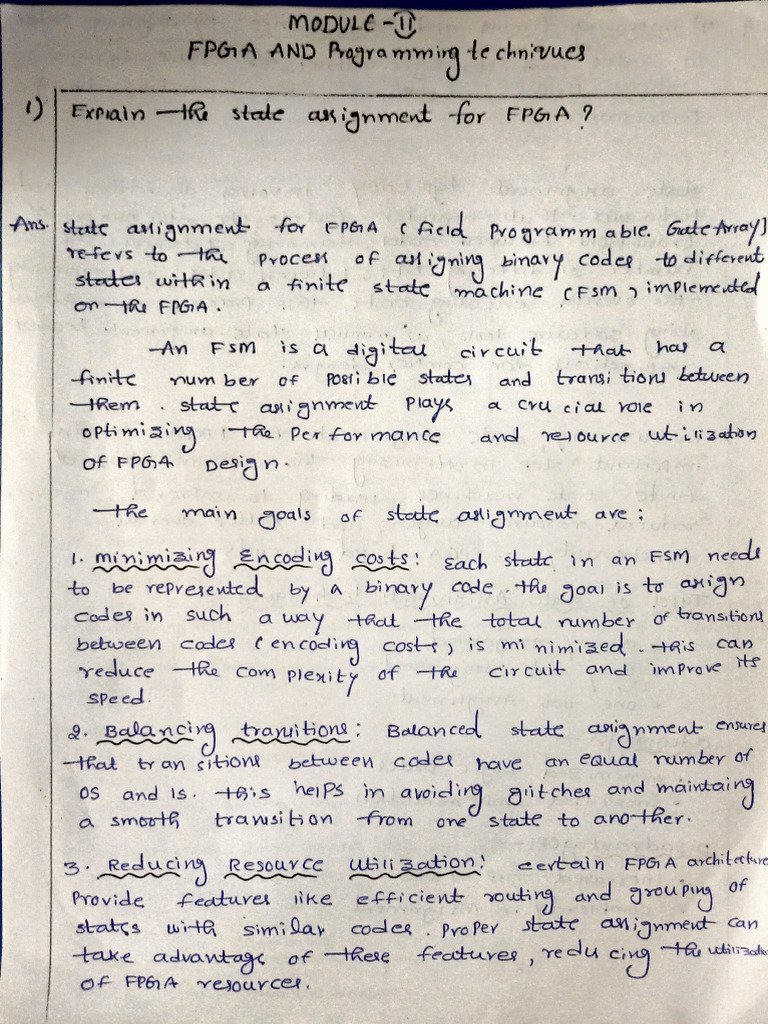 MODULE - II
FPGA AND Programming techniques
1) Explain the state assignment for FPGA ?
Ans. state assignment for FPGA ( Field Programmable. Gate Array)
refers to the process of assigning binary codes to different
states within a finite state machine (FSM) implemented
on the FPGA.
An FSM is a digital circuit that has a
finite number of possible states and transitions between
them. state assignment plays a crucial role in
optimizing the performance and resource utilization
of FPGA Design.
The main goals of state assignment are :
1. Minimizing Encoding costs: Each state in an FSM needs
to be represented by a binary code. the goal is to assign
codes in such a way that the total number of transitions
between codes (encoding costs) is minimized. this can
reduce the complexity of the circuit and improve its
speed.
2. Balancing transitions: Balanced state assignment ensures
that transitions between codes have an equal number of
0s and 1s. this helps in avoiding glitches and maintaing
a smooth transition from one state to another.
3. Reducing Resource utilization: certain FPGA architecture
Provide features like efficient routing and grouping of
states with similar codes. proper state assignment can
take advantage of these features, reducing the
of FPGA resources.